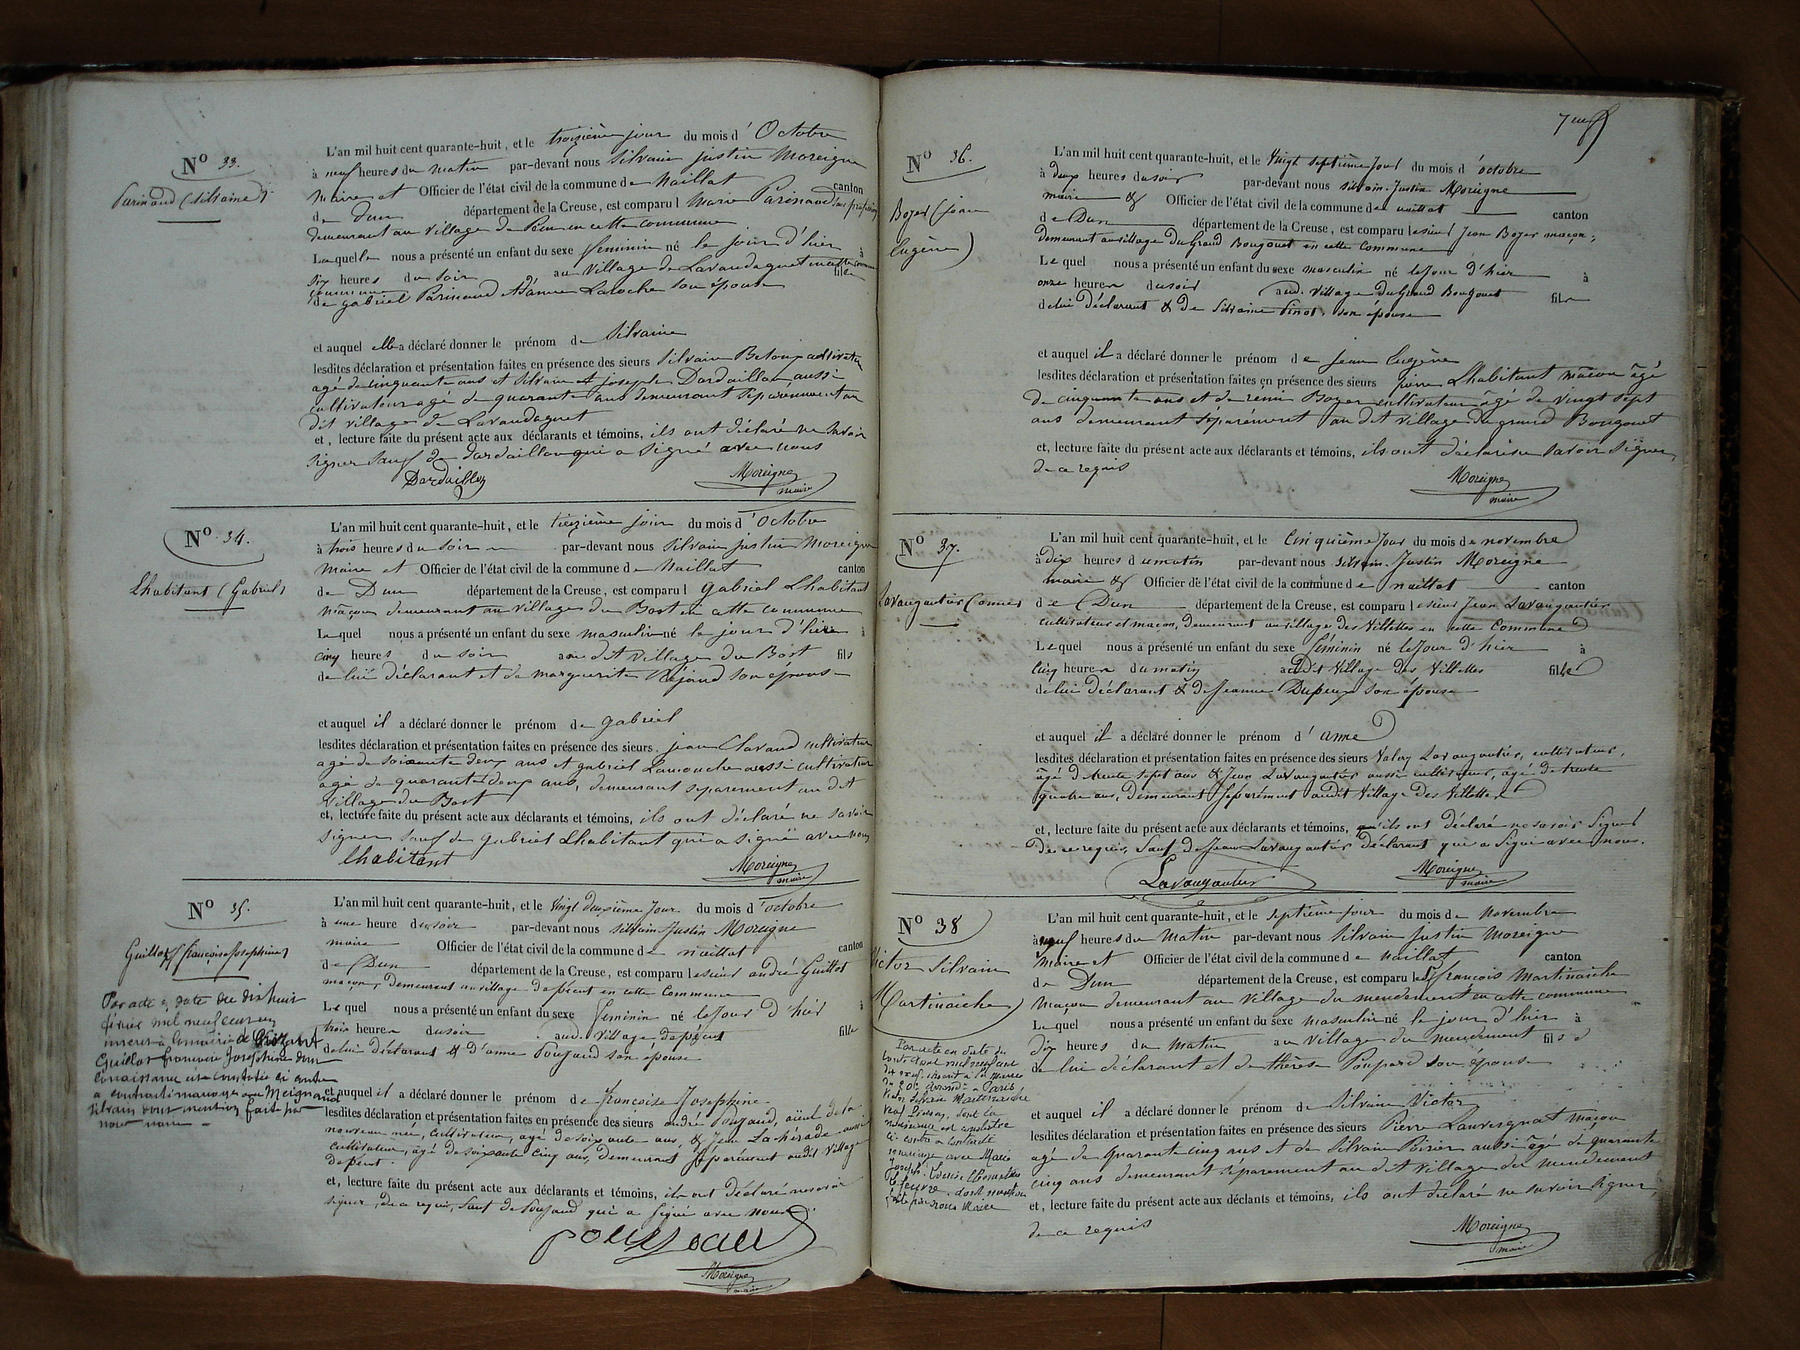 N° 33.
Parinaud (Silvaine)
L'an mil huit cent quarante-huit, et le troizième jour du mois d'Octobre
à neuf heures du matin par-devant nous Silvain justin Moreigne
Maire et Officier de l'état civil de la commune de Naillat canton
de Dun département de la Creuse, est comparu l Marie Parinaud sans profession
demeurant au village de Péux en cette commune
Laquelle nous a présenté un enfant du sexe feminin né le jour d'hier à
Six heures du soir au Village de Lavaudaguet
fille
de gabriel Parinaud & d'anne Laroche son épouse
et auquel elle a déclaré donner le prénom de Silvaine
lesdites déclaration et présentation faites en présence des sieurs Silvain Betoux cultivateur
agé de cinquante ans et Silvain joseph Dardaillon, aussi
cultivateur agé de quarante ans demeurant séparemment au
dit village de Lavaudaguet
et, lecture faite du présent acte aux déclarants et témoins, ils ont déclaré ne savoir
signer sauf de dardaillon qui a signé avec nous
Dardaillon Moreigne
maire
N° 34.
Lhabitant (Gabriel)
L'an mil huit cent quarante-huit, et le treizième jour du mois d'Octobre
à trois heures du soir par-devant nous Silvain justin Moreigne
maire et Officier de l'état civil de la commune de Naillat canton
de Dun département de la Creuse, est comparu l gabriel Lhabitant
maçon demeurant au village du Bost en cette commune
Lequel nous a présenté un enfant du sexe masculin né le jour d'hier à
cinq heures du soir au dit village du Bost fils
de lui déclarant et de marguerite Rejaud son épouse
et auquel il a déclaré donner le prénom de gabriel
lesdites déclaration et présentation faites en présence des sieurs jean Claraud cultivateur
agé de soixante deux ans et gabriel Lamouche aussi cultivateur
agé de quarante deux ans, demeurant séparement au dit
village du Bost
et, lecture faite du présent acte aux déclarants et témoins, ils ont déclaré ne savoir
signer sauf de gabriel Lhabitant qui a signé avec nous
Lhabitant Moreigne
maire
N° 35.
Guillot (françoise Josephine)
Par acte en date du dix huit
février mil neuf cent
inscrit à la mairie de
Guillot françoise Josephine dont
la naissance est constatée ci contre
a contracté mariage avec Meignaud
Silvain dont mention faite par
nous maire
L'an mil huit cent quarante-huit, et le Vingt deuxième Jour du mois d'octobre
à une heure du soir par-devant nous silvain Justin Moreigne
maire Officier de l'état civil de la commune de naillat canton
de Dun département de la Creuse, est comparu le sieur andré Guillot
maçon, demeurant au village de péux en cette Commune
Lequel nous a présenté un enfant du sexe féminin né le Jour d'hier à
trois heures du soir aud. village de péux fille
de lui déclarant & d'anne Poujaud son épouse
et auquel il a déclaré donner le prénom de françoise Josephine
lesdites déclaration et présentation faites en présence des sieurs andré Poujaud, aïeul de la
nouveau née, cultivateur, agé de soixante ans, & Jean Lachirade aussi
cultivateur, agé de soixante cinq ans, demeurant séparément audit village
de péux.
et, lecture faite du présent acte aux déclarants et témoins, ils ont déclaré ne savoir
signer, de ce requis, sauf de Poujaud qui a signé avec nous
Moreigne
maire
7
N° 36.
Boyer (jean
Eugène)
L'an mil huit cent quarante-huit, et le Vingt septième Jour du mois d'octobre
à deux heures du soir par-devant nous silvain Justin Moreigne
maire & Officier de l'état civil de la commune de naillat canton
de Dun département de la Creuse, est comparu le sieur Jean Boyer maçon,
demeurant au village du Grand Bougouet en cette Commune
Lequel nous a présenté un enfant du sexe masculin né le Jour d'hier à
onze heures du soir aud. village du Grand Bougouet fils
de lui déclarant & de Silvaine Pinot son épouse
et auquel il a déclaré donner le prénom de jean Eugène
lesdites déclaration et présentation faites en présence des sieurs pierre Lhabitant maçon âgé
de cinquante ans et de rémi Boyer cultivateur âgé de vingt sept
ans demeurant séparément au dit village du grand Bougouet
et, lecture faite du présent acte aux déclarants et témoins, ils ont déclaré ne savoir signer,
de ce requis
Moreigne
maire
N° 37.
Lavaugautier (anne)
L'an mil huit cent quarante-huit, et le Cinquième Jour du mois de novembre
à dix heures du matin par-devant nous silvain Justin Moreigne
maire & Officier de l'état civil de la commune de naillat canton
de Dun département de la Creuse, est comparu le sieur Jean Lavaugautier
cultivateur et maçon, demeurant au village des Villettes en cette Commune
Lequel nous a présenté un enfant du sexe féminin né le Jour d'hier à
Cinq heures du matin audit village des Villettes fille
de lui déclarant & de Jeanne Dupeux son épouse
et auquel il a déclaré donner le prénom d'anne
lesdites déclaration et présentation faites en présence des sieurs Valéry Lavaugautier, cultivateur,
âgé de trente sept ans & Jean Lavaugautier aussi cultivateur, agé de trente
quatre ans, demeurant séparément audit village des Villettes
et, lecture faite du présent acte aux déclarants et témoins, ils ont déclaré ne savoir signer
de ce requis, sauf de Jean Lavaugautier déclarant qui a signé avec nous.
Lavaugautier Moreigne
maire
N° 38
Victor Silvain
Martinaiche
Par acte en date du
mil neuf cent
dix neuf, inscrit à la mairie
du 20e arrondt à Paris,
Victor Silvain Martinaiche
dont la
naissance est constatée
ci contre a contracté
mariage avec Marie
Joseph Louise
Lefeuvre, dont mention
faite par nous Maire
L'an mil huit cent quarante-huit, et le septième jour du mois de Novembre
à neuf heures du Matin par-devant nous Silvain Justin Moreigne
Maire et Officier de l'état civil de la commune de naillat canton
de Dun département de la Creuse, est comparu le Sr françois Martinaiche
Maçon demeurant au village du mendement en cette commune
Lequel nous a présenté un enfant du sexe masculin né le jour d'hier à
dix heures du Matin au village du mendement fils
de lui déclarant et de thérèse Poupard son épouse
et auquel il a déclaré donner le prénom de Silvain Victor
lesdites déclaration et présentation faites en présence des sieurs Pierre Lauvergnat maçon
agé de quarante cinq ans et de Silvain Poirier aussi âgé de quarante
cinq ans demeurant séparement au dit village du mendement
et, lecture faite du présent acte aux déclants et témoins, ils ont déclaré ne savoir signer,
de ce requis
Moreigne
maire